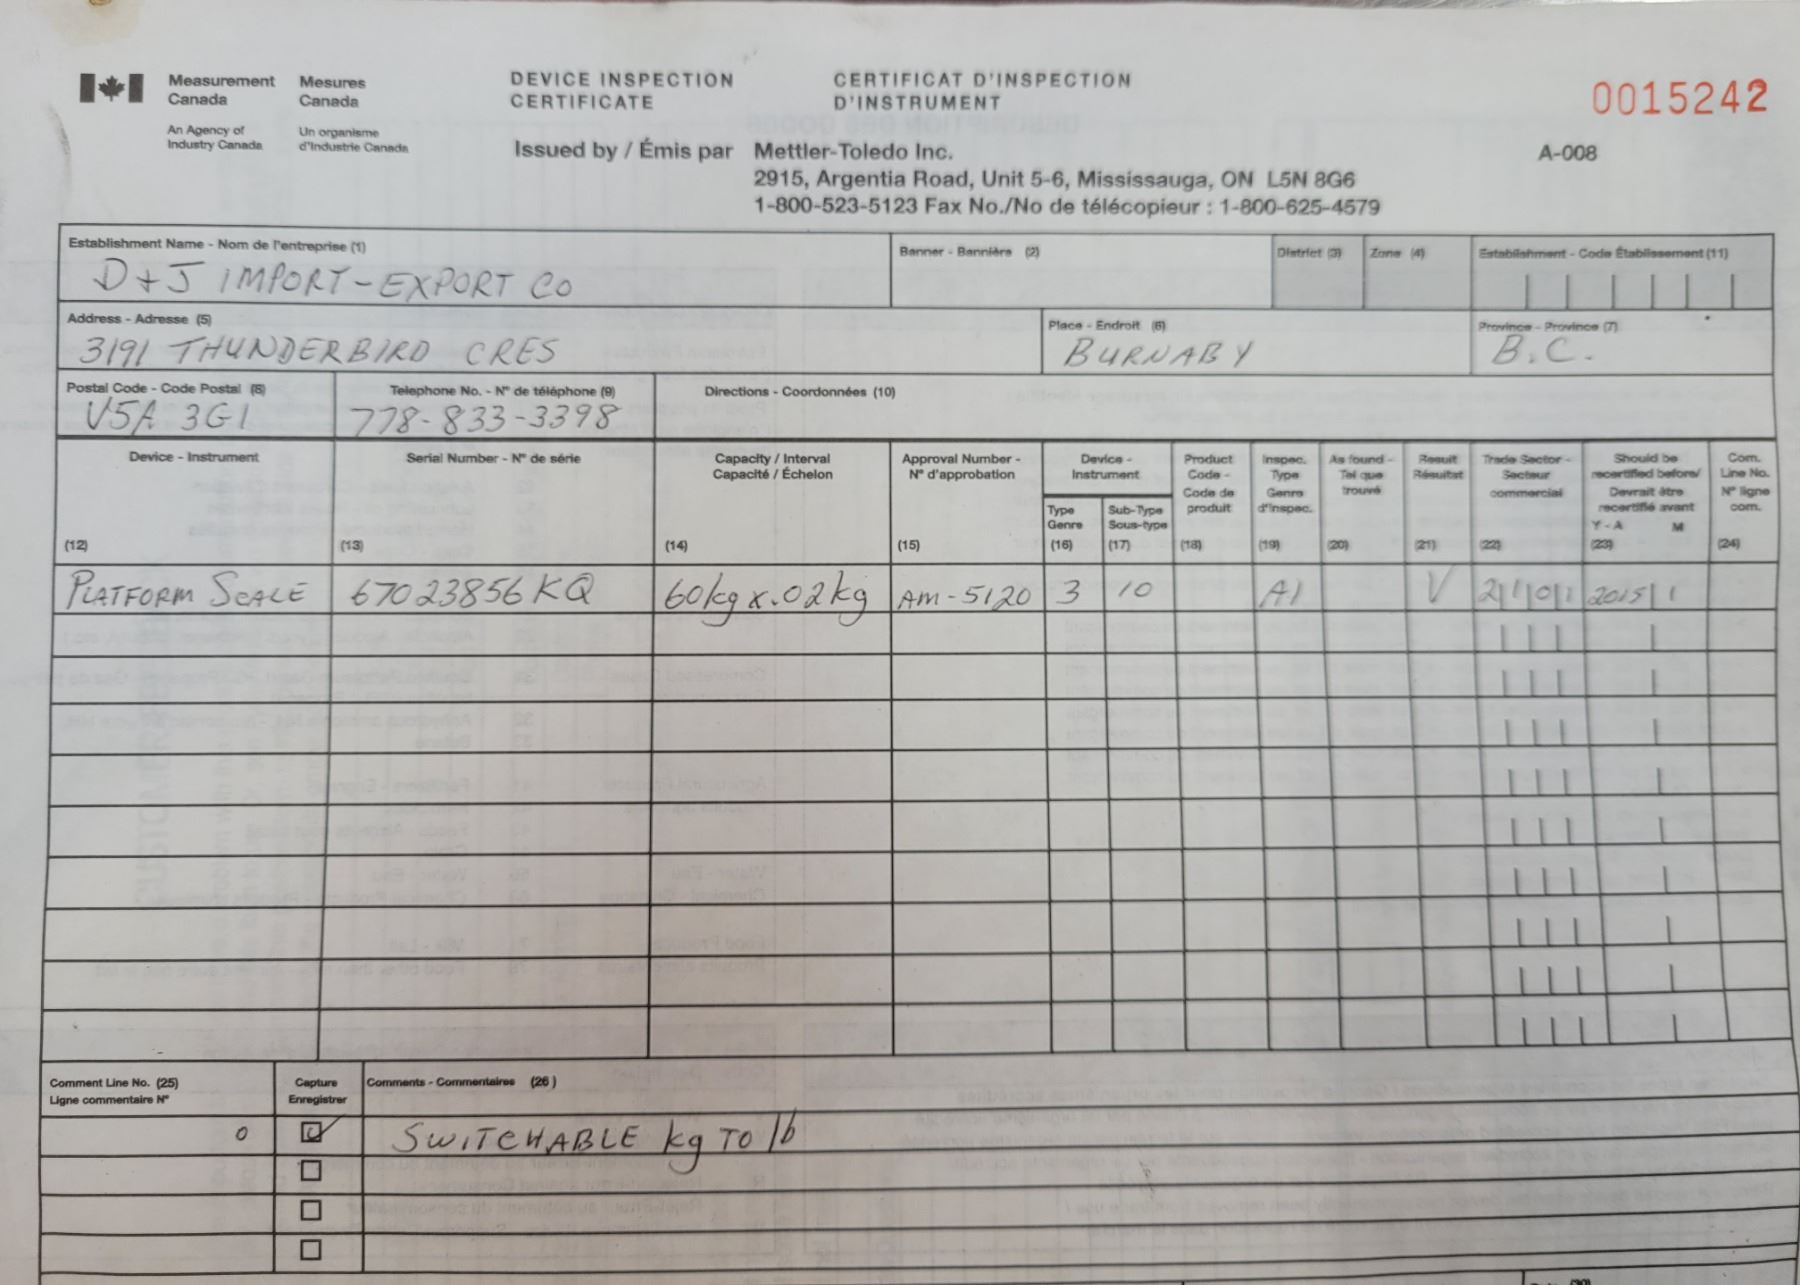 Measurement Canada
Mesures Canada
An Agency of Industry Canada
Un organisme d'Industrie Canada
DEVICE INSPECTION CERTIFICATE
CERTIFICAT D'INSPECTION D'INSTRUMENT
0015242
Issued by / Émis par Mettler-Toledo Inc.
A-008
2915, Argentia Road, Unit 5-6, Mississauga, ON L5N 8G6
1-800-523-5123 Fax No./No de télécopieur : 1-800-625-4579
Establishment Name - Nom de l'entreprise (1)
D+J IMPORT-EXPORT CO
Banner - Bannière (2)
District (3)
Zone (4)
Establishment - Code Établissement (11)
Address - Adresse (5)
3191 THUNDERBIRD CRES
Place - Endroit (6)
BURNABY
Province - Province (7)
B.C.
Postal Code - Code Postal (8)
V5A 3G1
Telephone No. - N° de téléphone (9)
778-833-3398
Directions - Coordonnées (10)
Device - Instrument (12)
Serial Number - N° de série (13)
Capacity / Interval Capacité / Échelon (14)
Approval Number - N° d'approbation (15)
Device - Instrument
Type Genre (16)
Sub-Type Sous-type (17)
Product Code - Code de produit (18)
Inspec. Type Genre d'inspec. (19)
As found - Tel que trouvé (20)
Result Résultat (21)
Trade Sector - Secteur commercial (22)
Should be recertified before/ Devrait être recertifié avant Y - A M (23)
Com. Line No. N° ligne com. (24)
PLATFORM SCALE 67023856KQ 60kg x .02kg AM-5120 3 10 A1 V 2|1|0|1 2015|1
Comment Line No. (25) Ligne commentaire N°
Capture Enregistrer
Comments - Commentaires (26)
0 SWITCHABLE kg TO lb